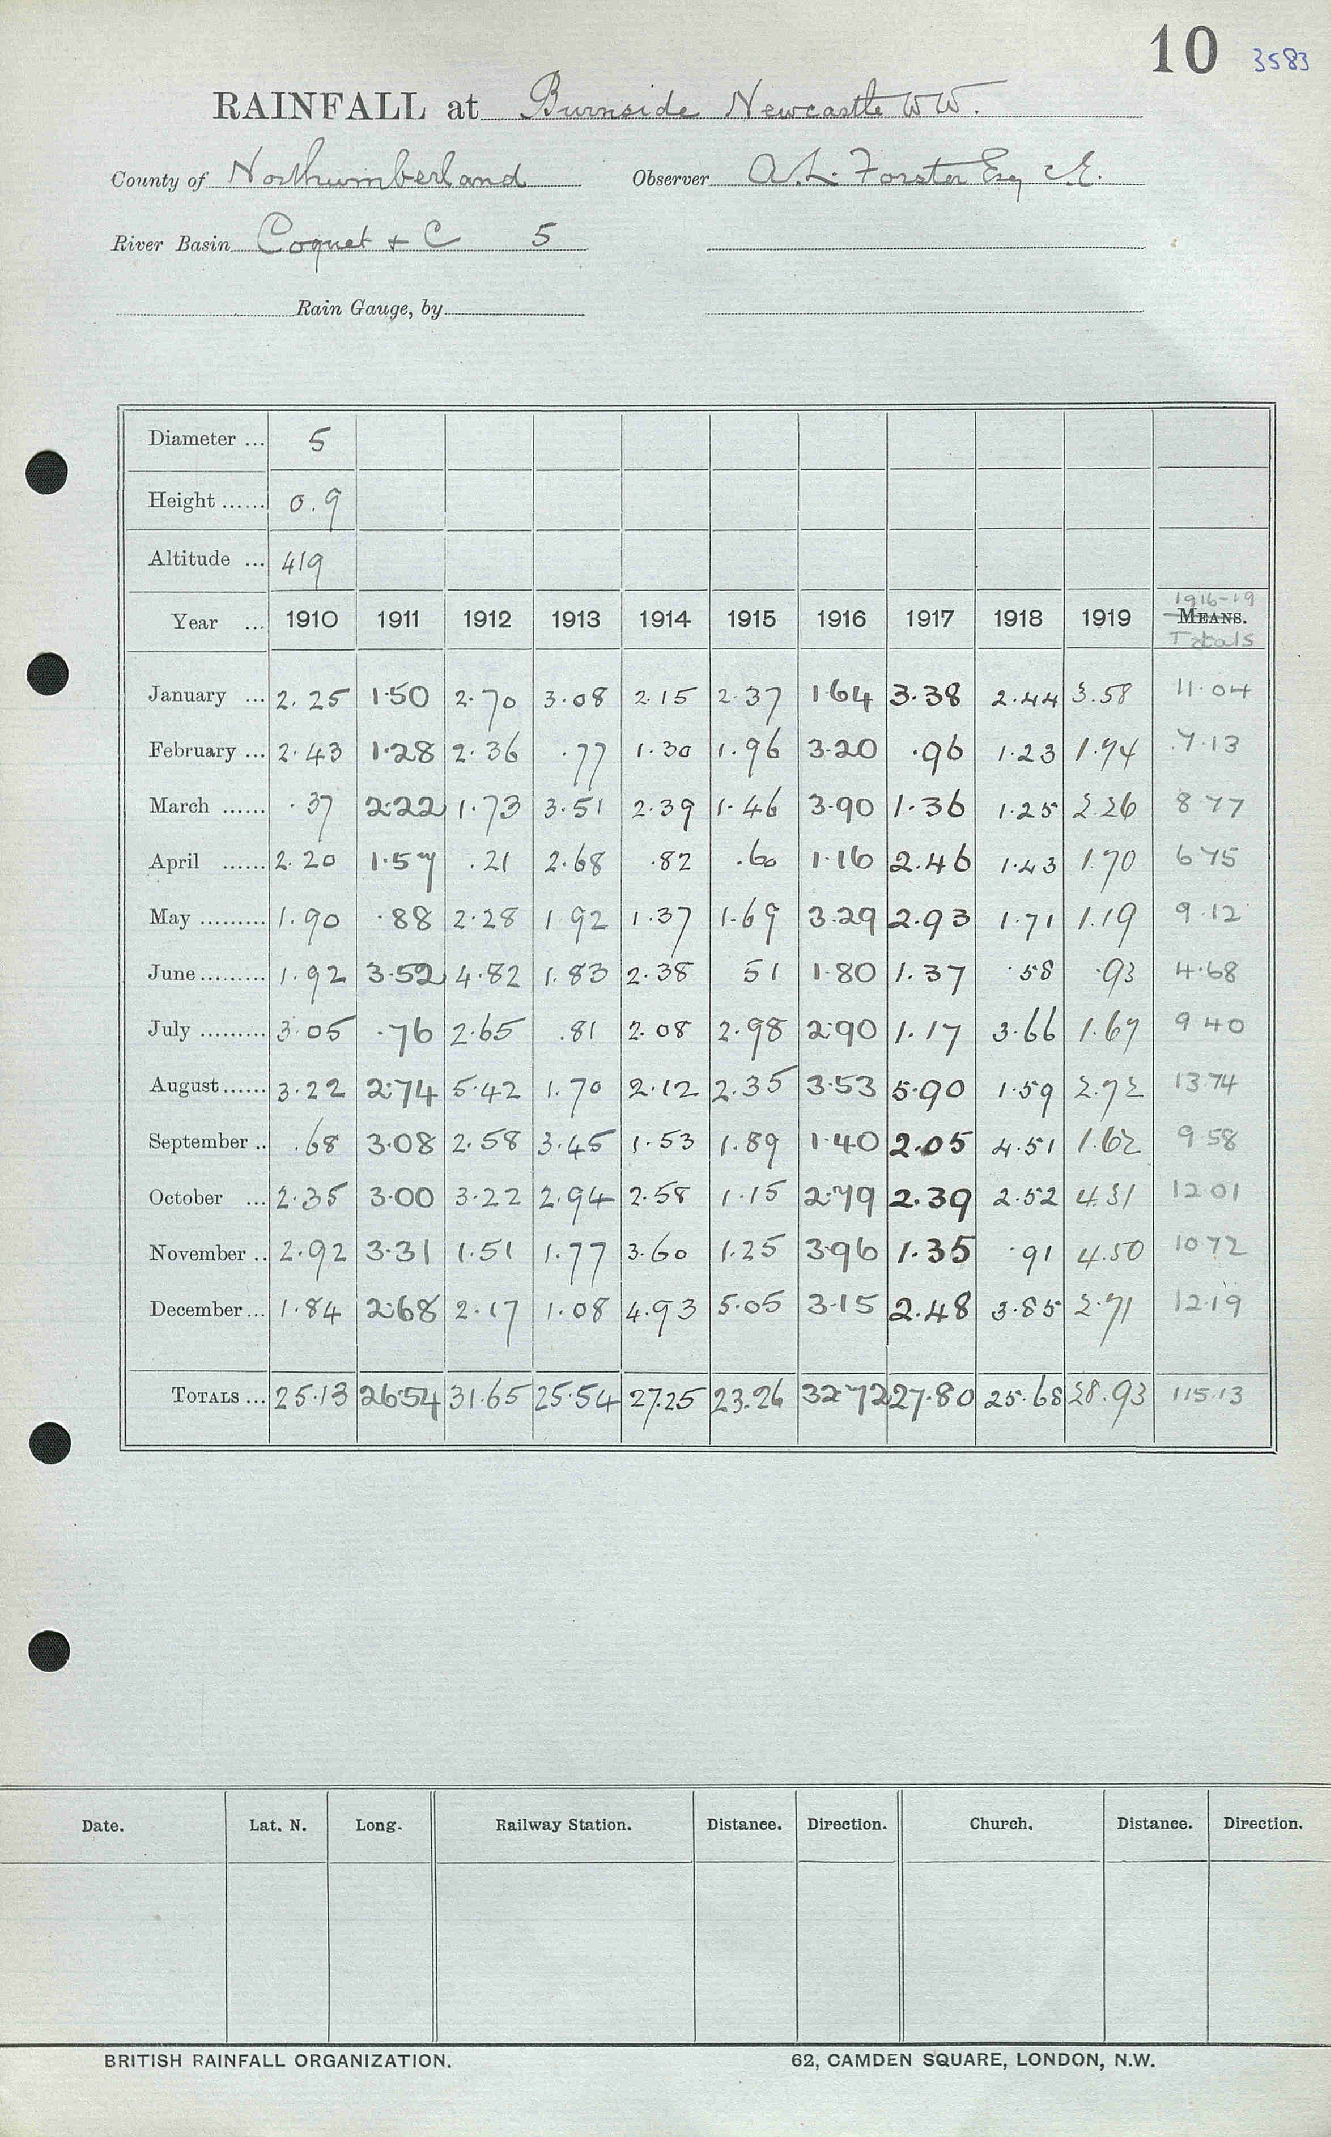 10 3583
RAINFALL at Burnside Newcastle W W.
County of Northumberland Observer A. L. Forster Esq C.E.
River Basin Coquet + C 5
Rain Gauge, by
Diameter ... 5
Height ...... 0.9
Altitude ... 419
1916-19
Year ... 1910 1911 1912 1913 1914 1915 1916 1917 1918 1919 MEANS.
Totals
January ... 2.25 1.50 2.70 3.08 2.15 2.37 1.64 3.38 2.44 3.58 11.04
February ... 2.43 1.28 2.36 .77 1.30 1.96 3.20 .96 1.23 1.74 7.13
March ...... .37 2.22 1.73 3.51 2.39 1.46 3.90 1.36 1.25 2.26 8 77
April ...... 2.20 1.57 .21 2.68 .82 .60 1.16 2.46 1.43 1.70 6 75
May ......... 1.90 .88 2.28 1 92 1.37 1.69 3.29 2.93 1.71 1.19 9.12
June ......... 1.92 3.52 4.82 1.83 2.38 51 1.80 1.37 .58 .93 4.68
July ......... 3.05 .76 2.65 .81 2.08 2.98 2.90 1.17 3.66 1.67 9 40
August ...... 3.22 2.74 5.42 1.70 2.12 2.35 3.53 5.90 1.59 2.72 13.74
September .. .68 3.08 2.58 3.45 1.53 1.89 1.40 2.05 4.51 1.62 9.58
October ... 2.35 3.00 3.22 2.94 2.58 1.15 2.79 2.39 2.52 4.31 12 01
November .. 2.92 3.31 1.51 1.77 3.60 1.25 3.96 1.35 .91 4.50 10 72
December ... 1.84 2.68 2.17 1.08 4.93 5.05 3.15 2.48 3.85 2.71 12.19
TOTALS ... 25.13 26.54 31.65 25.54 27.25 23.26 32.72 27.80 25.68 28.93 115.13
Date. Lat. N. Long. Railway Station. Distance. Direction. Church. Distance. Direction.
BRITISH RAINFALL ORGANIZATION. 62, CAMDEN SQUARE, LONDON, N.W.